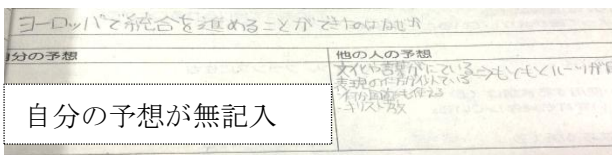 ヨーロッパで統合を進めることができたのはなぜか
自分の予想
他の人の予想
文化や言葉がにている
表現の仕方が似ている
キリスト教
自分の予想が無記入